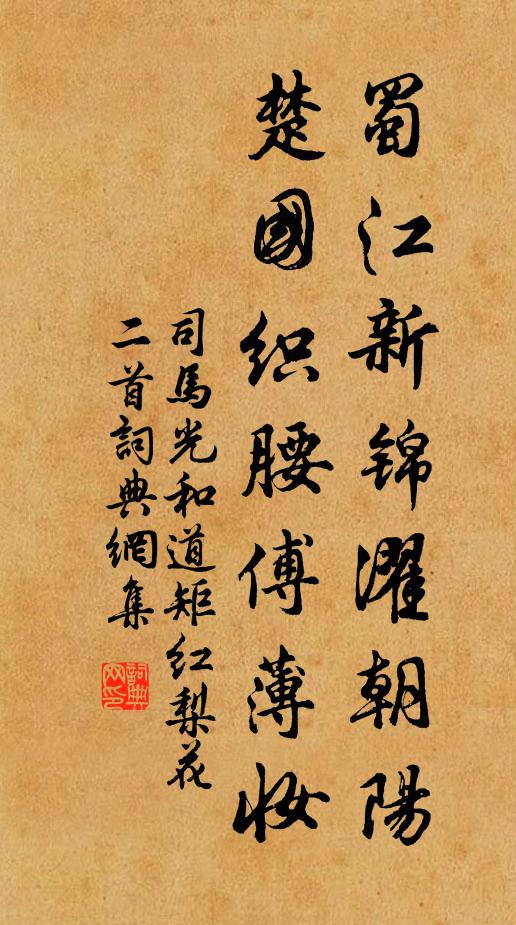 蜀江新锦濯朝陽
楚國织腰傅薄妝
司馬光和道矩红梨花
二首詞典網集
詞典
网印